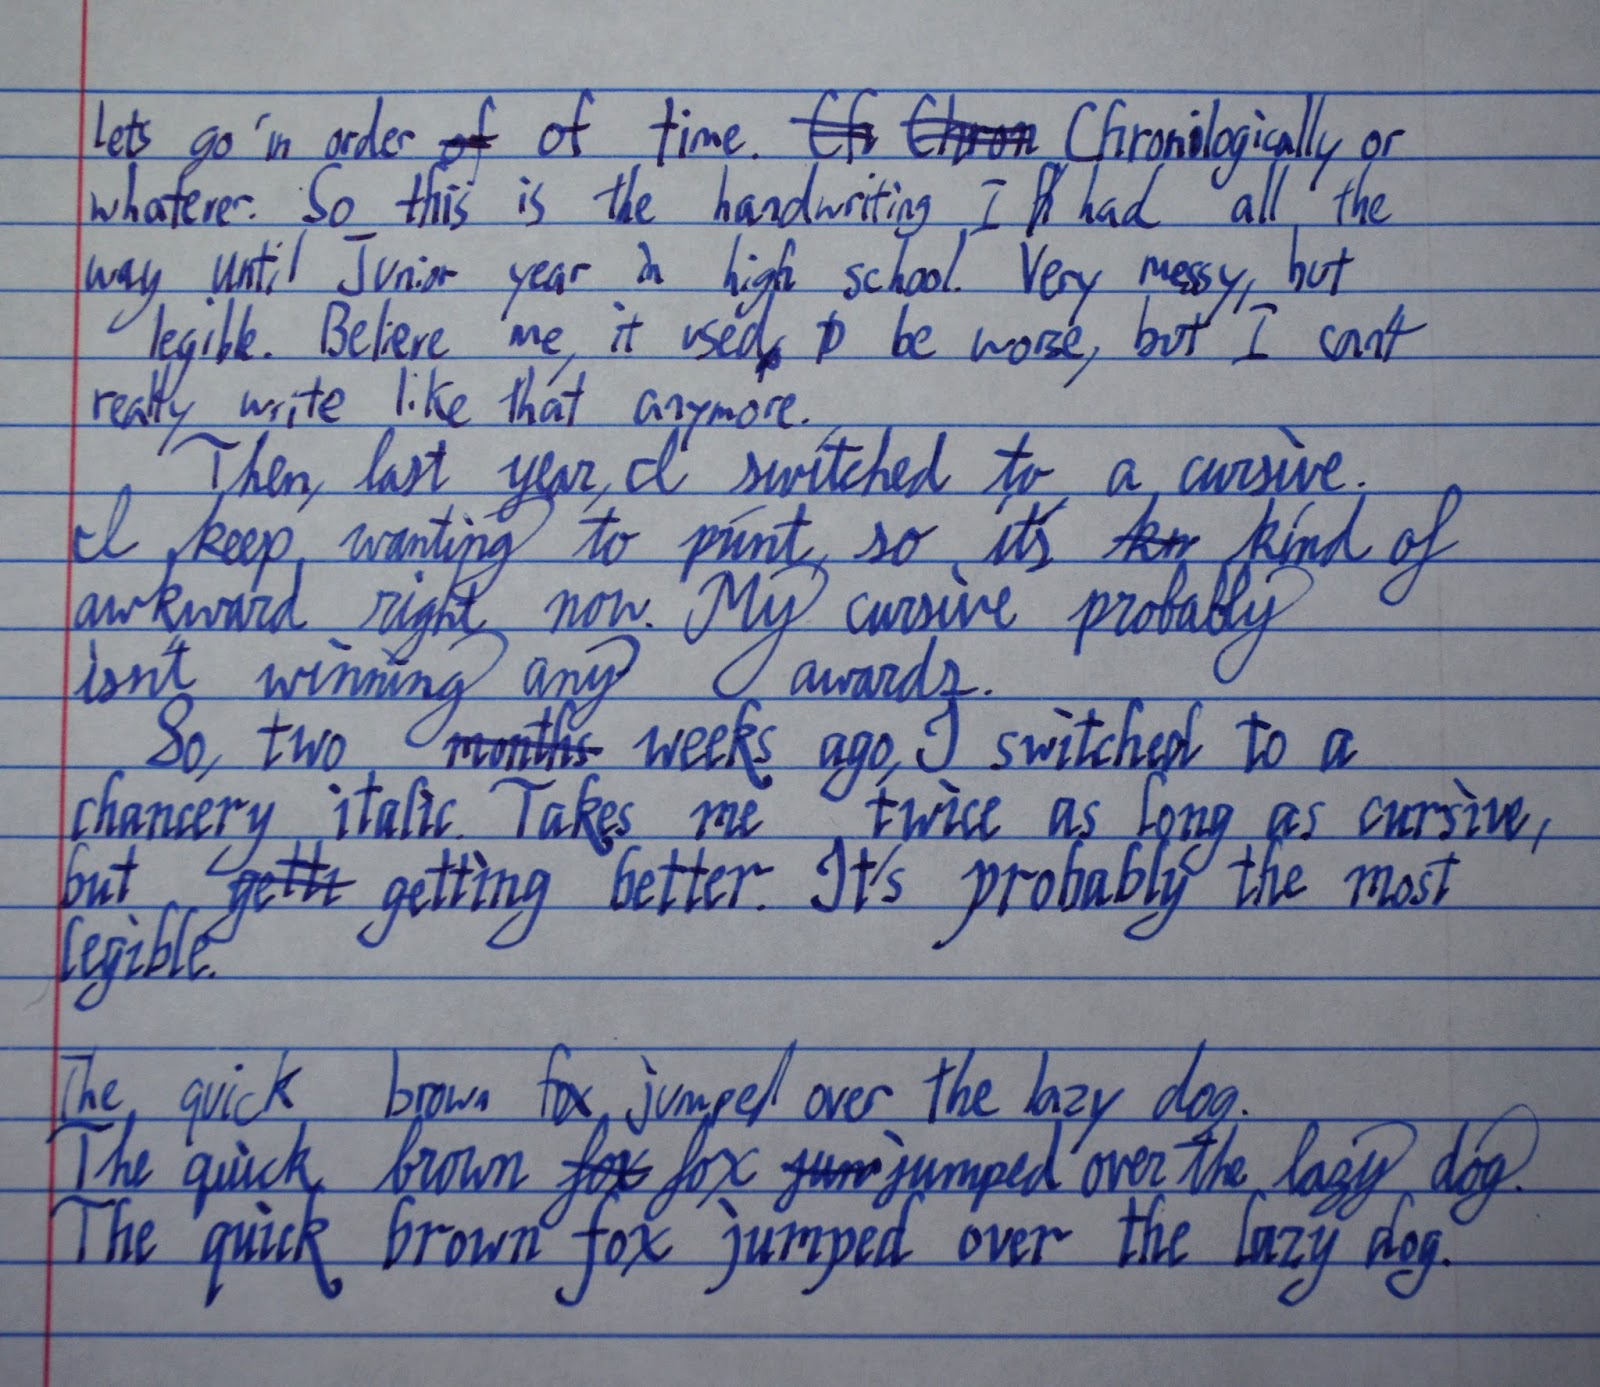 Lets go in order of of time. Ch Chron Chronologically or
whatever. So this is the handwriting I h had all the
way until Junior year in high school. Very messy, but
legible. Believe me, it used to be worse, but I can't
really write like that anymore.
Then, last year, I switched to a cursive.
I keep wanting to print, so it's kn kind of
awkward right now. My cursive probably
isn't winning any awards.
So, two months weeks ago, I switched to a
chancery italic. Takes me twice as long as cursive,
but getti getting better. It's probably the most
legible.
The quick brown fox jumped over the lazy dog.
The quick brown fox fox jum jumped over the lazy dog.
The quick brown fox jumped over the lazy dog.